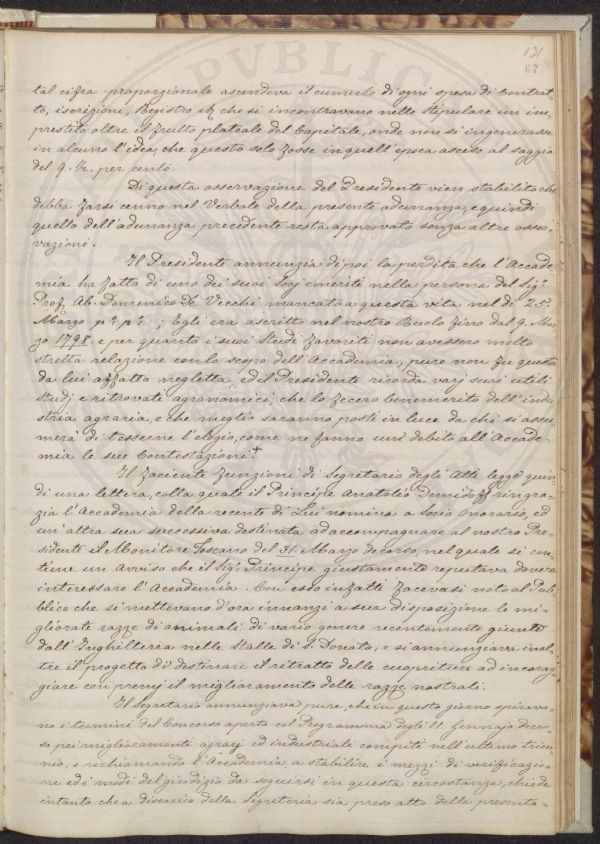 131
67
tal cifra proporzionale ascendeva il cumulo di ogni spesa di Contrat-
to, iscrizioni, Registro &c che si incontravano nello stipulare un im-
prestito oltre il frutto plateale del Capitale, onde non si ingenerasse
in alcuno l'idea, che questo solo fosse in quell'epoca asceso al saggio
del 9. ½. per cento.
Di questa osservazione del Presidente vien stabilito che
debba farsi cenno nel Verbale della presente adunanza; e quindi
quello dell'adunanza precedente resta approvato senza altre osser-
vazioni.
Il Presidente annunzia di poi la perdita che l'Accade-
mia ha fatto di uno dei suoi Socj emeriti nella persona del Sig.
Prof. Ab. Domenico De Vecchi mancato a questa vita nel dì 25.
Marzo p.° p.° ; Egli era ascritto nel nostro Ruolo fino dal 9. Mar-
zo 1798. e per quanto i suoi Studi favoriti non avessero molto
stretta relazione con lo scopo dell'Accademia, pure non fu questa
da lui affatto negletta, ed il Presidente ricorda varj suoi utili
studj e ritrovati agronomici, che lo fecero benemerito dell'indu-
stria agraria, e che meglio saranno posti in luce da chi si assu-
merà di tesserne l'elogio, come ne fanno un debito all'Accade-
mia le sue Contestazioni.†
Il facente funzioni di Segretario degli Atti legge quin-
di una lettera, colla quale il Principe Anatolio Demidoff ringra-
zia l'Accademia della recente di Lui nomina a Socio Onorario, ed
un'altra sua successiva destinata ad accompagnare al nostro Pre-
sidente il Monitore Toscano del 31. Marzo decorso, nel quale si con-
tiene un Avviso che il Sig. Principe giustamente reputava dovere
interessare l'Accademia. Con esso infatti facevasi noto al Pub-
blico che si mettevano d'ora innanzi a sua disposizione le mi-
gliorate razze di animali di vario genere recentemente giunte
dall'Inghilterra nelle Stalle di S. Donato, e si annunziava inol-
tre il progetto di destinare il ritratto delle cuopriture ad incorag-
giare con premj il miglioramento delle razze nostrali.
Il Segretario annunziava pure, che in questo giorno spirava-
no i termini del Concorso aperto col Programma degli 11 Gennajo decor-
so pei miglioramenti agrarj ed industriale compiti nell'ultimo trien-
nio, e richiamando l'Accademia a stabilire i mezzi di verificazio-
ne ed i modi del giudizio da seguirsi in questa circostanza, chiede
intanto che a discarico della Segreteria sia preso atto della presenta-